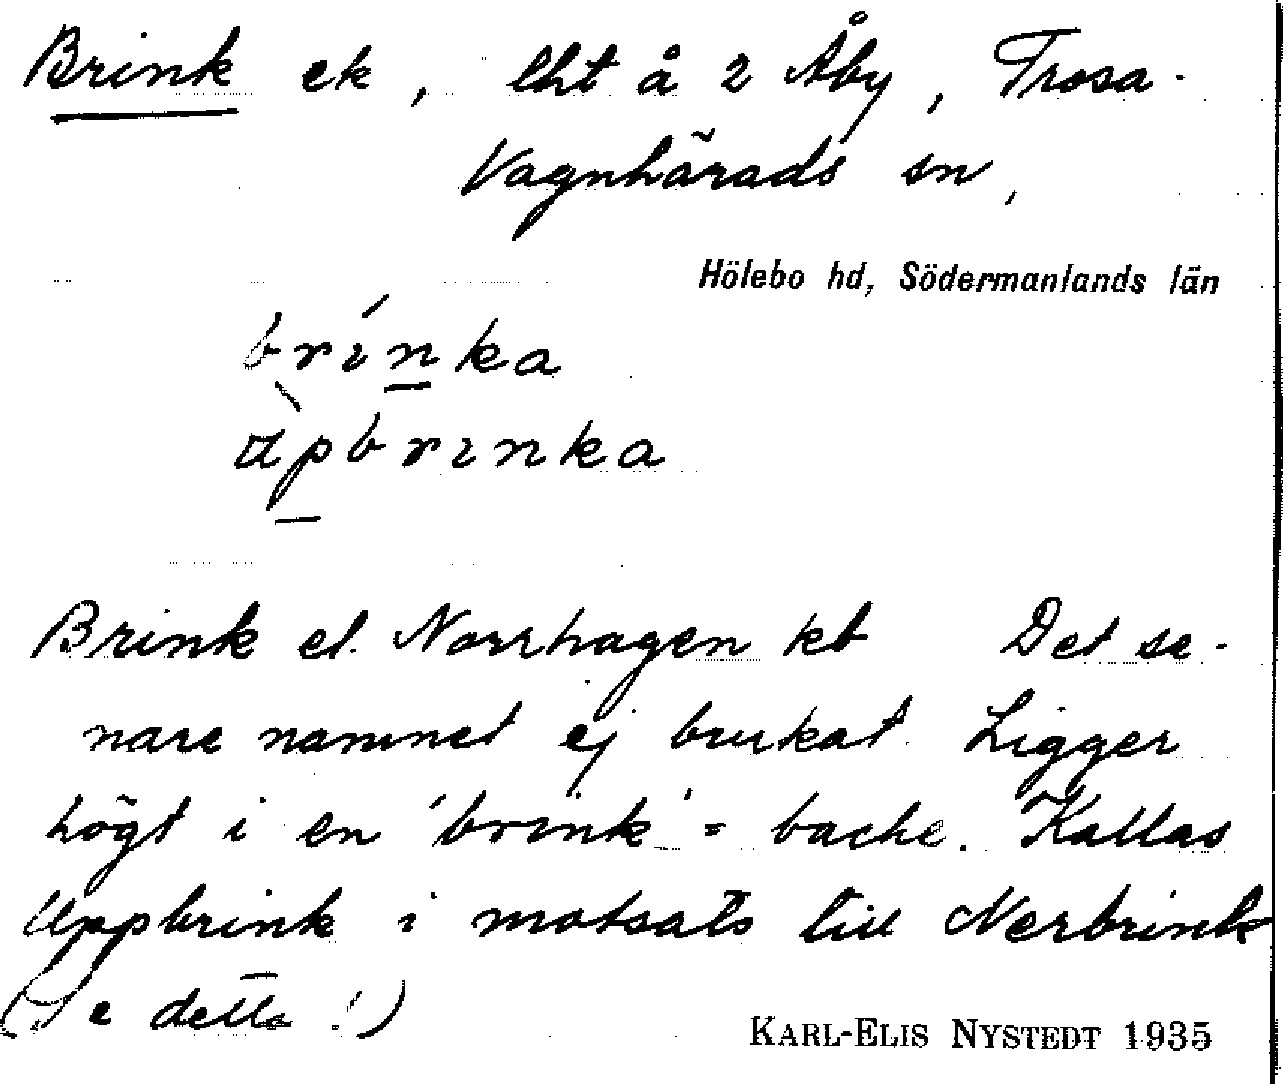 Brink ek, lht å 2 Åby, Trosa-
Vagnhärads sn,
Hölebo hd, Södermanlands län
brínka
ùpbrinka
Brink el. Norrhagen kb Det se-
nare namnet ej brukat. Ligger
högt i en 'brink' = backe. Kallas
Uppbrink i motsats till Nerbrink
(Se detta!)
KARL-ELIS NYSTEDT 1935